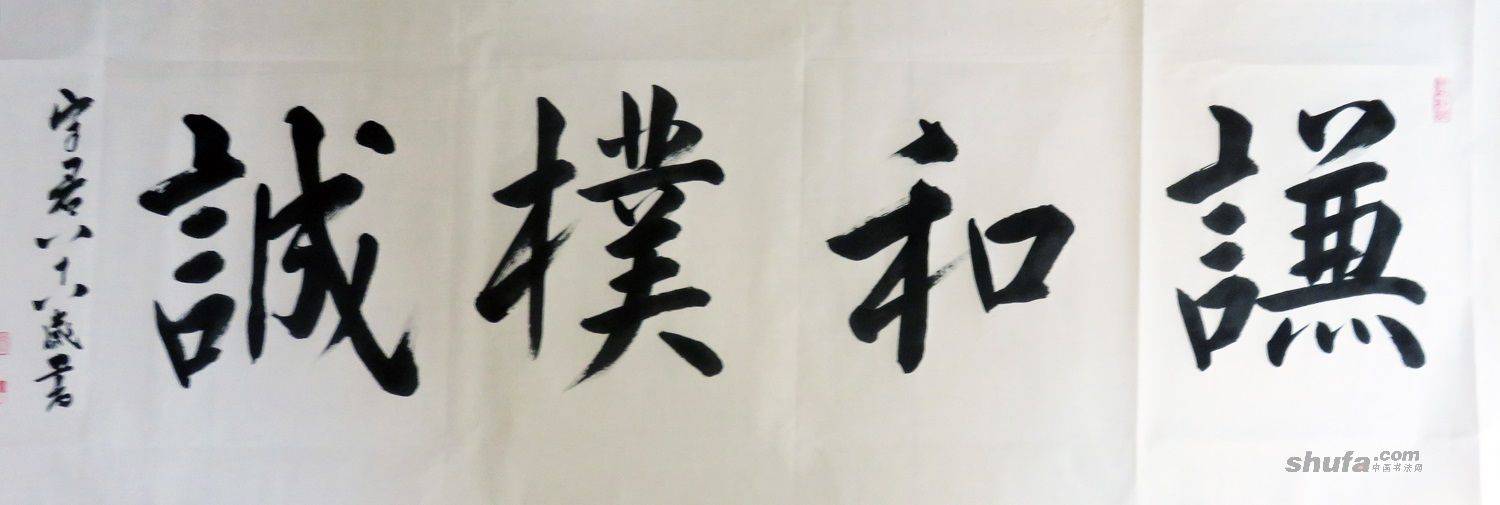 謙和樸誠
宇君八十八歲書
shufa.com
中国书法网